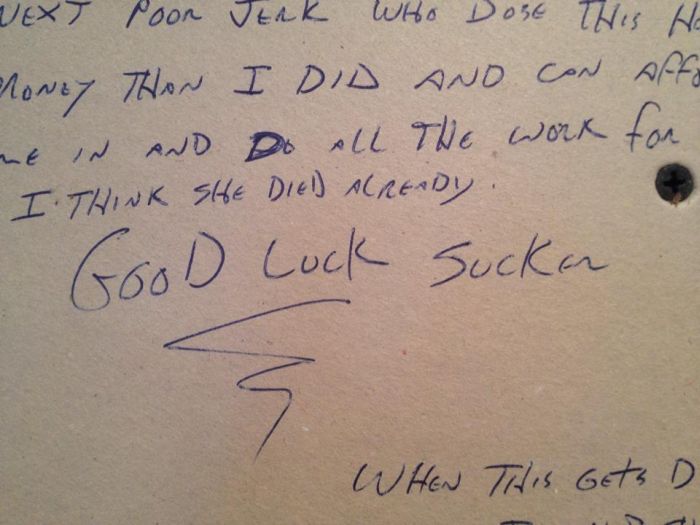 NEXT POOR JERK WHO DOSE THIS
MONEY THAN I DID AND CAN
IN AND DO ALL THE WORK FOR
I THINK SHE DIED ALREADY.
GOOD LUCK SUCKER
WHEN THIS GETS D